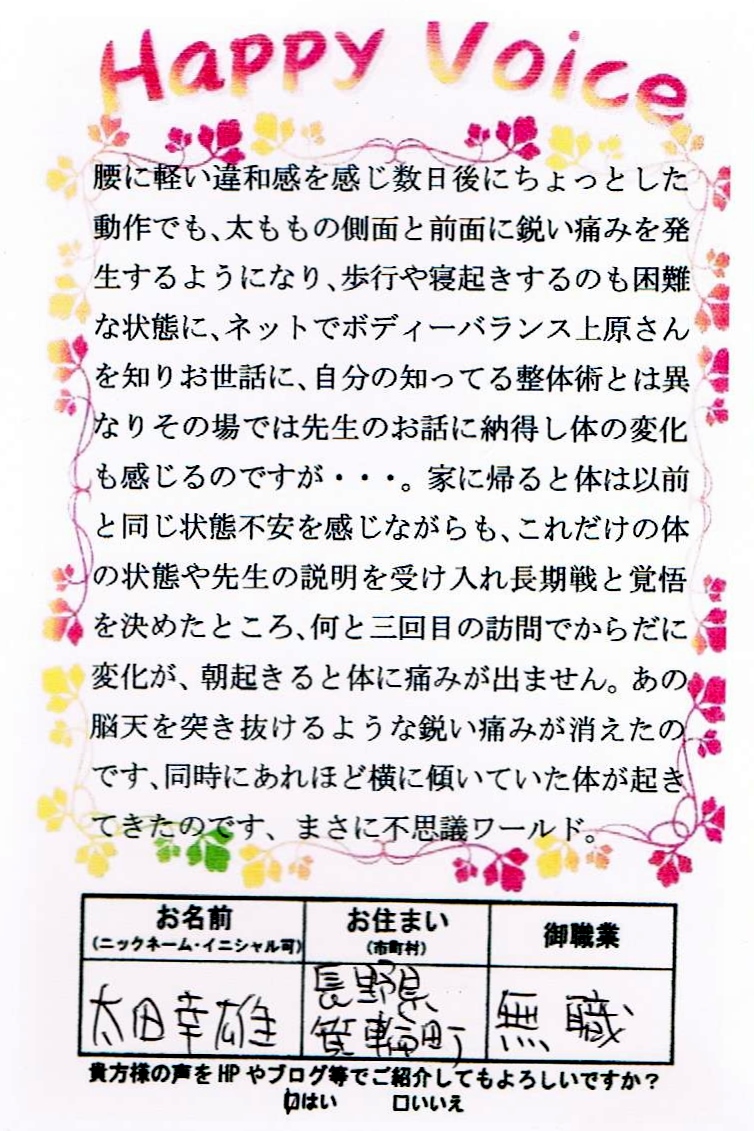 Happy Voice
腰に軽い違和感を感じ数日後にちょっとした
動作でも、太ももの側面と前面に鋭い痛みを発
生するようになり、歩行や寝起きするのも困難
な状態に、ネットでボディーバランス上原さん
を知りお世話に、自分の知ってる整体術とは異
なりその場では先生のお話に納得し体の変化
も感じるのですが・・・。家に帰ると体は以前
と同じ状態不安を感じながらも、これだけの体
の状態や先生の説明を受け入れ長期戦と覚悟
を決めたところ、何と三回目の訪問でからだに
変化が、朝起きると体に痛みが出ません。あの
脳天を突き抜けるような鋭い痛みが消えたの
です、同時にあれほど横に傾いていた体が起き
てきたのです、まさに不思議ワールド。
お名前 お住まい 御職業
(ニックネーム・イニシャル可) (市町村)
太田幸雄 長野県 無職
箕輪町
貴方様の声をHPやブログ等でご紹介してもよろしいですか?
☑はい □いいえ